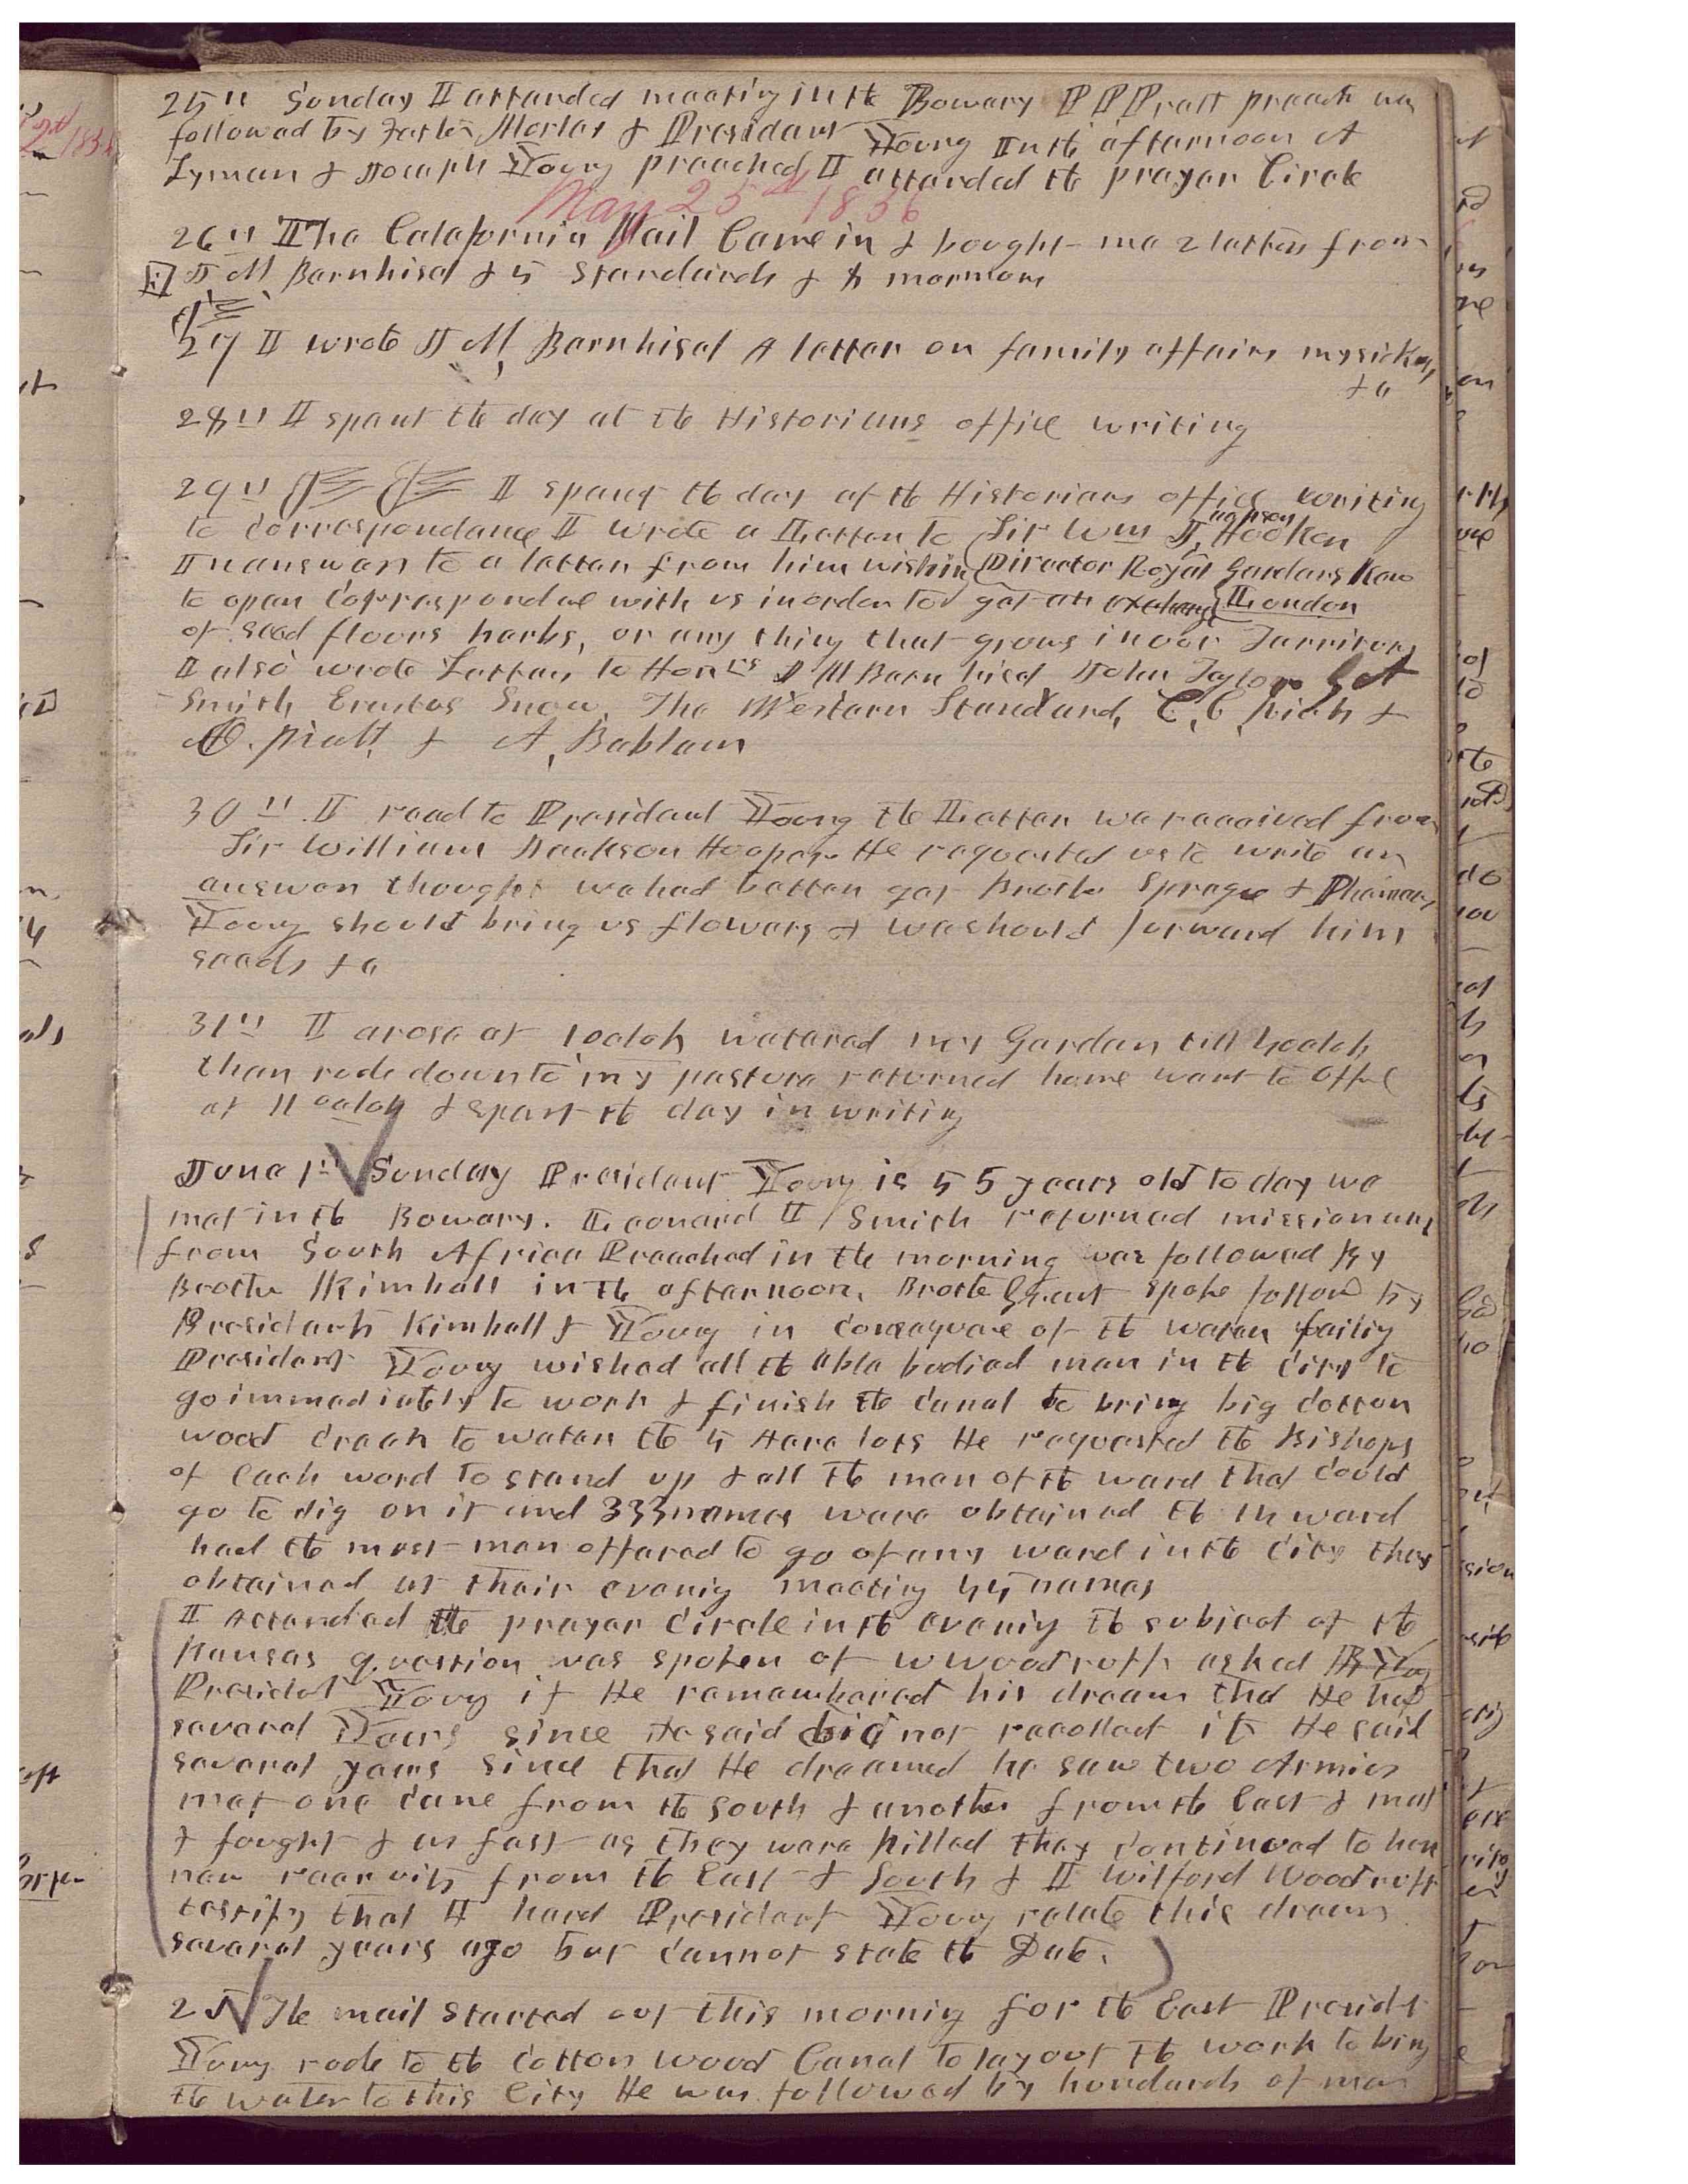 25" Sunday I attended meeting in the Bowery P P Pratt preach was
followed by Father Morley & President Young In the afternoon A
Lyman & Joseph Young preached I attended the prayer Circle
May 25th 1856
26" The Calafornia Mail Came in & brought me 2 letters from
J M Bernhisel & 5 Standards & 8 mormons
27 I wrote J M, Bernhisel A letter on family affairs my sickness
& c
28" I spent the day at the Historians office writing
29" I spent the day at the Historians office writing
to Correspondance I wrote a Letter to Sir Wm J, Hooker
Jackson
In answer to a letter from him wishing Director Royal Gardens Kew
to open Correspondence with us in order to get an exchange London
of seed floors herbs, or any thing that grows in our Territory
I also wrote Letters to Honrs J M Bernhisel John Taylor G A
Smith Erastus Snow, The Western Standard, C, C, Rich &
O. Pratt, & A, Bablam
30" I read to President Young the Letter we received from
Sir William Jackson Hooper He requested us to write an
answer thought we had better get Brother Sprague & Phinehas
Young should bring us flowers & we should forward him
seeds & c
31" I arose at 1 oclok watered my Garden till 4 oclok
then rode down to my pasture returned home went to office
at 11 oclok & spent the day in writing
June 1st Sunday President Young is 55 years old to day we
met in the Bowery. Leonard I Smith returned missionary
from South Africa Preached in the morning was followed By
Brother Kimball in the afternoon. Brother Grant spoke followd by
Presidents Kimball & Young in Consequence of the water failing
President Young wished all the able bodied men in the City to
go immediately to work & finish the Canal to bring big Cotton
wood Creek to water the 5 Acre lots He requested the Bishops
of Each word to stand up & all the men of the ward that Could
go to dig on it and 333 names were obtained the 14 ward
had the most men offered to go of any ward in the City they
obtained at their evening meeting 45 names
I Attended the prayer Circle in the evening the subject of the
Kansas question was spoken of W Woodruff asked
Presidet Young if He remembered his dream that He had
several Years since He said did not recollect it He said
several years since that He dreamed he saw two Armies
met one Came from the South & another from the East & met
& fought & as fast as they were killed they Continued to have
new recruits from the East & South & I Wilford Woodruff
testify that I hard President Young relate this dream
several years ago but Cannot state the Date.
2d The mail started out this morning for the East Presidet
Young rode to the Cotton wood Canal to lay out the work to bring
the water to this City He was followed by hundreds of men